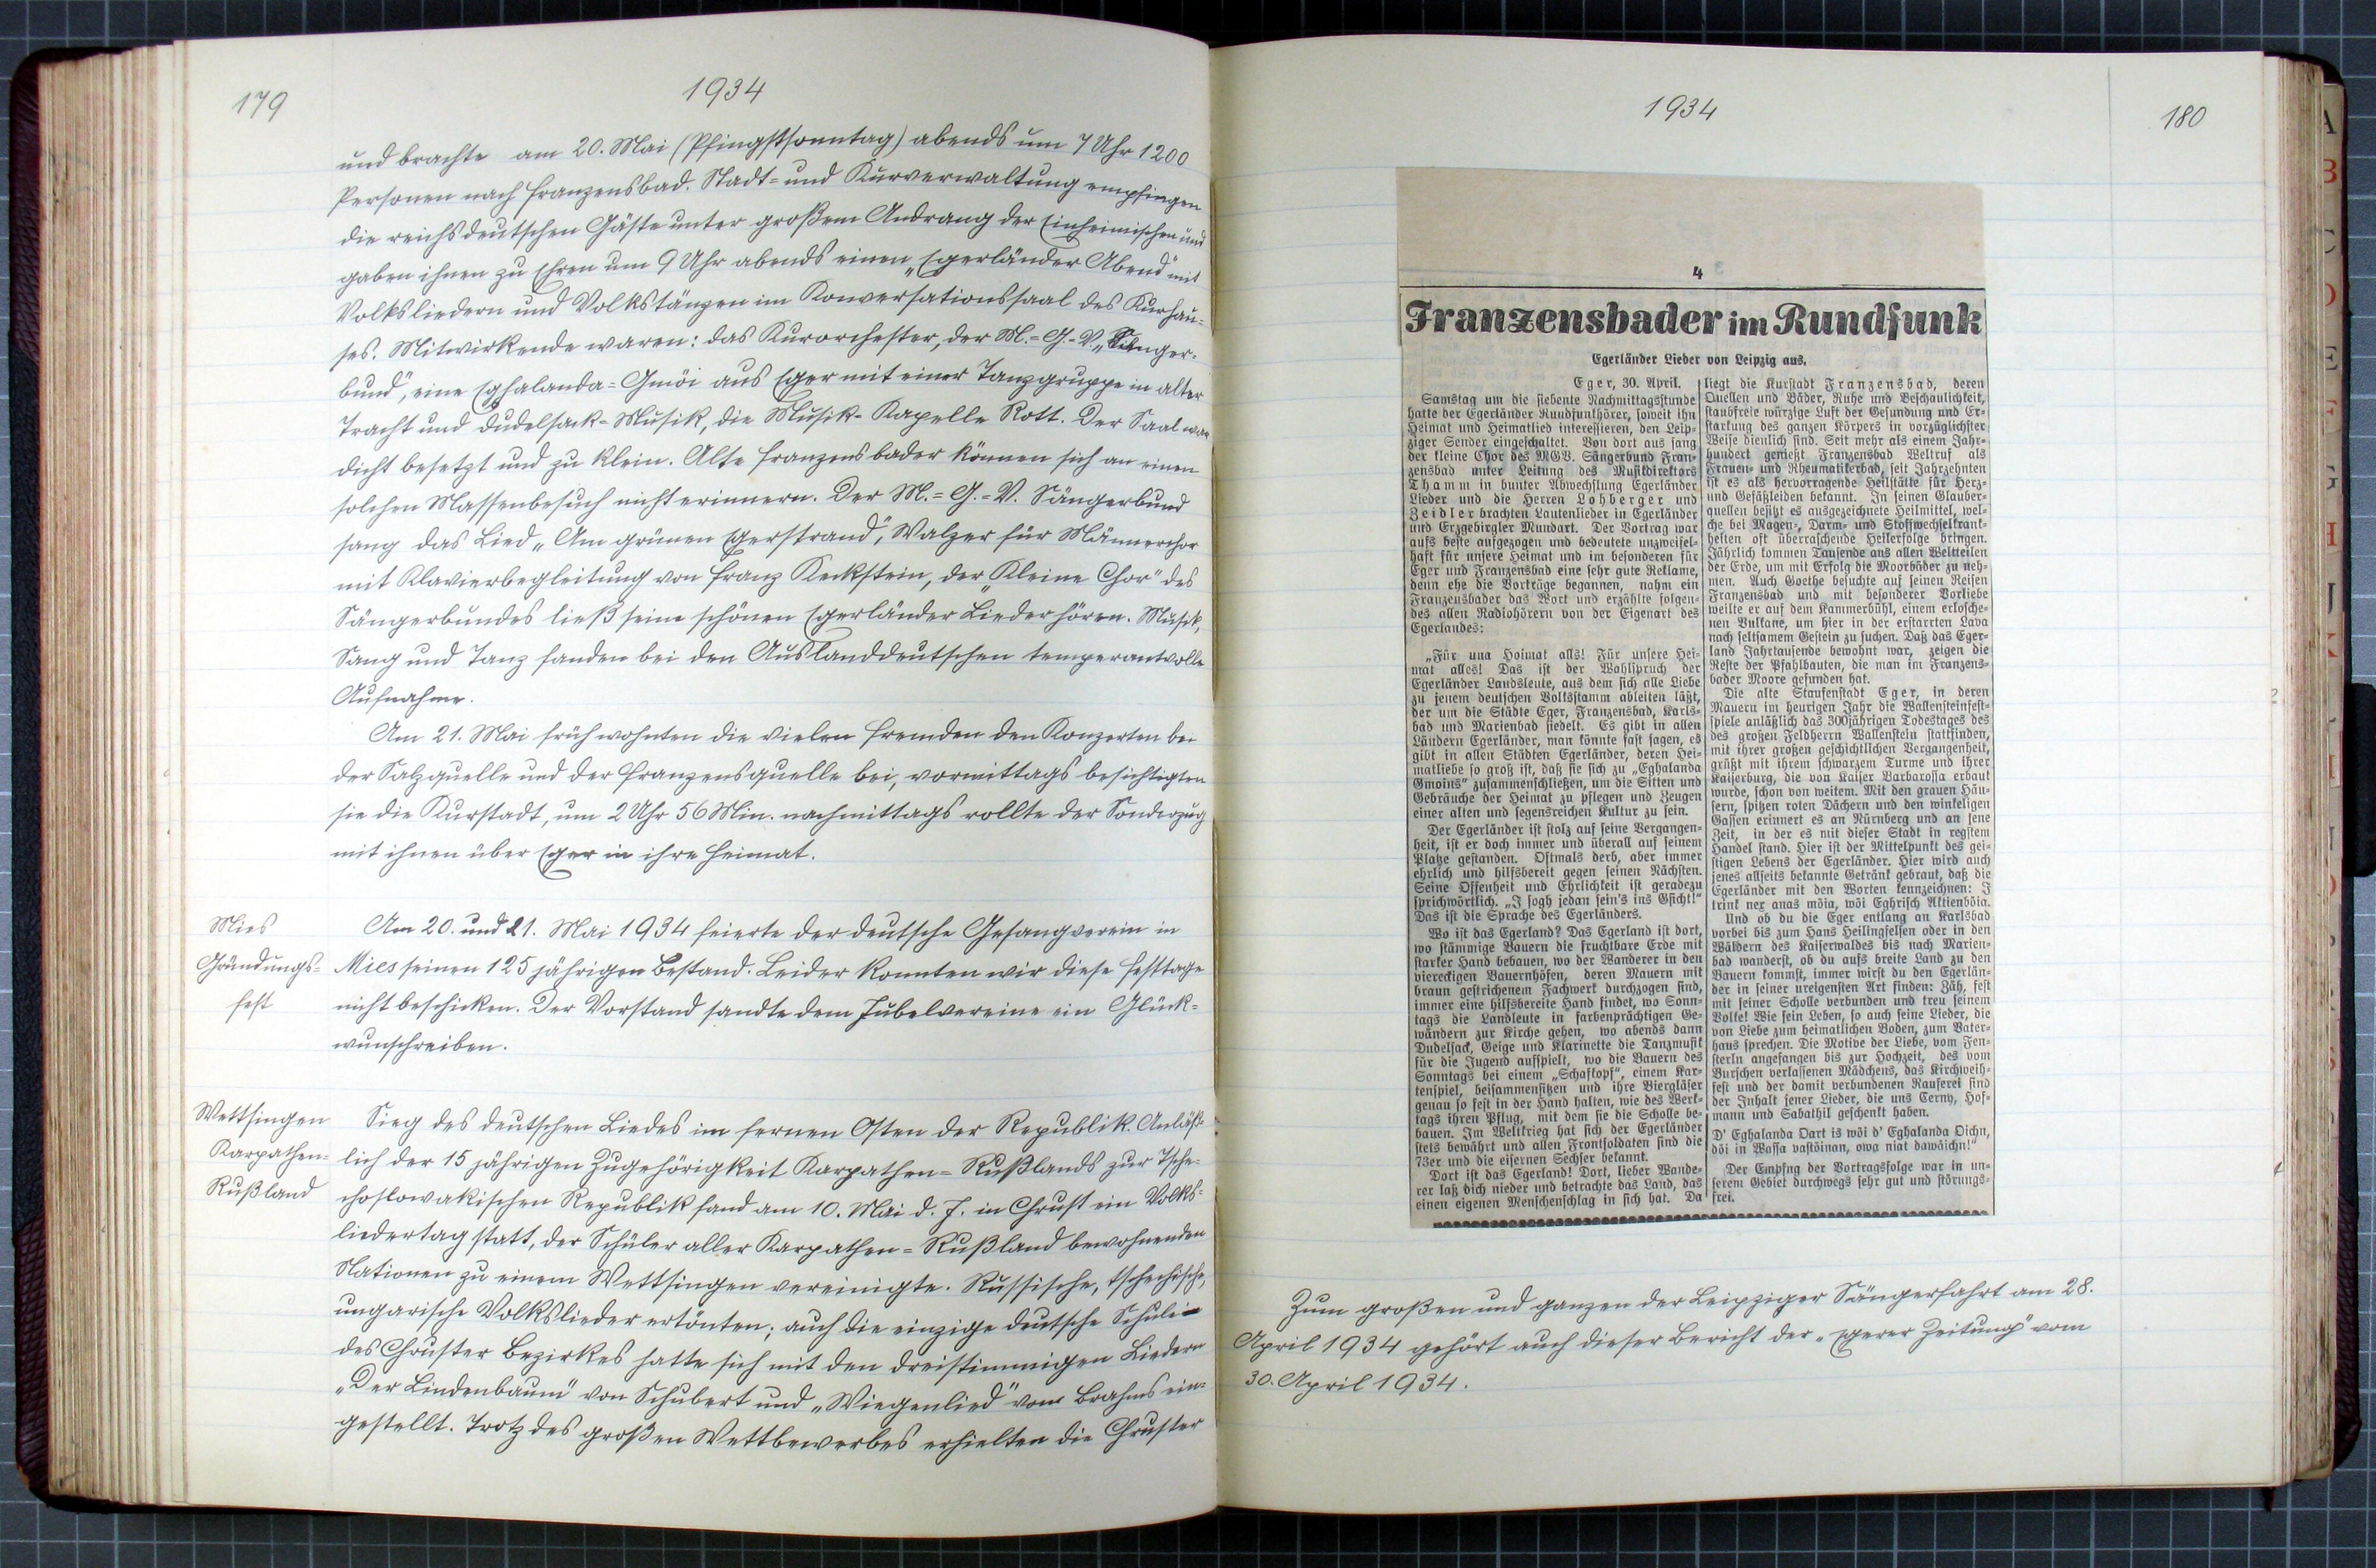 179
1934
und brachte am 20. Mai (Pfingstsonntag) abends um 7 Uhr 1200
Personen nach Franzensbad. Stadt= und Kurverwaltung empfingen
die reichsdeutschen Gäste unter großem Andrang der Einheimischen und
gaben ihnen zu Ehren um 9 Uhr abends einen „Egerländer Abend" mit
Volksliedern und Volkstänzen im Konversationssaal des Kurhau-
ses. Mitwirkende waren: das Kurorchester, der M.=G.-V. „Sänger-
bund", eine Eghalanda=Gmöi aus Eger mit einer Tanzgruppe in alter
Tracht und Dudelsack=Musik, die Musik=Kapelle Rott. Der Saal war
dicht besetzt und zu klein. Alte Franzensbader können sich an einen
solchen Massenbesuch nicht erinnern. Der M.=G.=V. Sängerbund
sang das Lied „Am grünen Egerstrand", Walzer für Männerchor
mit Klavierbegleitung von Franz Keckstein, der „Kleine Chor" des
Sängerbundes ließ seine schönen Egerländer Lieder hören. Musik,
Sang und Tanz fanden bei den Auslanddeutschen temperantvolle
Aufnahme.
Am 21. Mai früh wohnten die vielen Fremden den Konzerten bei
der Salzquelle und der Franzensquelle bei, vormittags besichtigten
sie die Kurstadt, um 2 Uhr 56 Min. nachmittags rollte der Sonderzug
mit ihnen über Eger in ihre Heimat.
Mies
Gründungs=
fest
Am 20. und 21. Mai 1934 feierte der deutsche Gesangverein in
Mies seinen 125 jährigen Bestand. Leider konnten wir diese Festtage
nicht beschicken. Der Vorstand sandte dem Jubelvereine ein Glück=
wunschreiben.
Wettsingen
Karpathen=
Rußland
Sieg des deutschen Liedes im fernen Osten der Republik. Anläß=
lich der 15 jährigen Zugehörigkeit Karpathen=Rußlands zur Tsche-
choslowakischen Republik fand am 10. Mai d. J. in Chust ein Volks=
liedertag statt, der Schüler aller Karpathen=Rußland bewohnenden
Nationen zu einem Wettsingen vereinigte. Russische, tschechische,
ungarische Volkslieder ertönten; auch die einzige deutsche Schule
des Chuster Bezirkes hatte sich mit den dreistimmigen Liedern
„Der Lindenbaum" von Schubert und „Wiegenlied" von Brahms ein-
gestellt. Trotz des großen Wettbewerbes erhielten die Chuster
1934
180
4
Franzensbader im Rundfunk
Egerländer Lieder von Leipzig aus.
Eger, 30. April.
Samstag um die siebente Nachmittagsstunde
hatte der Egerländer Rundfunkhörer, soweit ihn
Heimat und Heimatlied interessieren, den Leip-
ziger Sender eingeschaltet. Von dort aus sang
der kleine Chor des MGV. Sängerbund Fran-
zensbad unter Leitung des Musikdirektors
Thamm in bunter Abwechslung Egerländer
Lieder und die Herren Lohberger und
Zeidler brachten Lautenlieder in Egerländer
und Erzgebirgler Mundart. Der Vortrag war
aufs beste aufgezogen und bedeutete unzweifel-
haft für unsere Heimat und im besonderen für
Eger und Franzensbad eine sehr gute Reklame,
denn ehe die Vorträge begannen, nahm ein
Franzensbader das Wort und erzählte folgen-
des allen Radiohörern von der Eigenart des
Egerlandes:
„Für una Hoimat alls! Für unsere Hei-
mat alles! Das ist der Wahlspruch der
Egerländer Landsleute, aus dem sich alle Liebe
zu jenem deutschen Volksstamm ableiten läßt,
der um die Städte Eger, Franzensbad, Karls-
bad und Marienbad siedelt. Es gibt in allen
Ländern Egerländer, man könnte fast sagen, es
gibt in allen Städten Egerländer, deren Hei-
matliebe so groß ist, daß sie sich zu „Eghalanda
Gmoins" zusammenschließen, um die Sitten und
Gebräuche der Heimat zu pflegen und Zeugen
einer alten und segensreichen Kultur zu sein.
Der Egerländer ist stolz auf seine Vergangen-
heit, ist er doch immer und überall auf seinem
Platze gestanden. Oftmals derb, aber immer
ehrlich und hilfsbereit gegen seinen Nächsten.
Seine Offenheit und Ehrlichkeit ist geradezu
sprichwörtlich. „I sogh jedan sein's ins Gsicht!"
Das ist die Sprache des Egerländers.
Wo ist das Egerland? Das Egerland ist dort,
wo stämmige Bauern die fruchtbare Erde mit
starker Hand bebauen, wo der Wanderer in den
viereckigen Bauernhöfen, deren Mauern mit
braun gestrichenem Fachwerk durchzogen sind,
immer eine hilfsbereite Hand findet, wo Sonn-
tags die Landleute in farbenprächtigen Ge-
wändern zur Kirche gehen, wo abends dann
Dudelsack, Geige und Klarinette die Tanzmusik
für die Jugend aufspielt, wo die Bauern des
Sonntags bei einem „Schafkopf", einem Kar-
tenspiel, beisammensitzen und ihre Biergläser
genau so fest in der Hand halten, wie des Werk-
tags ihren Pflug, mit dem sie die Scholle be-
bauen. Im Weltkrieg hat sich der Egerländer
stets bewährt und allen Frontsoldaten sind die
73er und die eisernen Sechser bekannt.
Dort ist das Egerland! Dort, lieber Wande-
rer laß dich nieder und betrachte das Land, das
einen eigenen Menschenschlag in sich hat. Da
liegt die Kurstadt Franzensbad, deren
Quellen und Bäder, Ruhe und Beschaulichkeit,
staubfreie würzige Luft der Gesundung und Er-
starkung des ganzen Körpers in vorzüglichster
Weise dienlich sind. Seit mehr als einem Jahr-
hundert genießt Franzensbad Weltruf als
Frauen- und Rheumatikerbad, seit Jahrzehnten
ist es als hervorragende Heilstätte für Herz-
und Gefäßleiden bekannt. In seinen Glauber-
quellen besitzt es ausgezeichnete Heilmittel, wel-
che bei Magen-, Darm- und Stoffwechselkrank-
heiten oft überraschende Heilerfolge bringen.
Jährlich kommen Tausende aus allen Weltteilen
der Erde, um mit Erfolg die Moorbäder zu neh-
men. Auch Goethe besuchte auf seinen Reisen
Franzensbad und mit besonderer Vorliebe
weilte er auf dem Kammerbühl, einem erlosche-
nen Vulkane, um hier in der erstarrten Lava
nach seltsamem Gestein zu suchen. Daß das Eger-
land Jahrtausende bewohnt war, zeigen die
Reste der Pfahlbauten, die man im Franzens-
bader Moore gefunden hat.
Die alte Staufenstadt Eger, in deren
Mauern im heurigen Jahr die Wallensteinfest-
spiele anläßlich das 300jährigen Todestages des
des großen Feldherrn Wallenstein stattfinden,
mit ihrer großen geschichtlichen Vergangenheit,
grüßt mit ihrem schwarzem Turme und ihrer
Kaiserburg, die von Kaiser Barbarossa erbaut
wurde, schon von weitem. Mit den grauen Häu-
sern, spitzen roten Dächern und den winkeligen
Gassen erinnert es an Nürnberg und an jene
Zeit, in der es mit dieser Stadt in regstem
Handel stand. Hier ist der Mittelpunkt des gei-
stigen Lebens der Egerländer. Hier wird auch
jenes allseits bekannte Getränk gebraut, daß die
Egerländer mit den Worten kennzeichnen: I
trink nex anas möia, wöi Eghrisch Aktienböia.
Und ob du die Eger entlang an Karlsbad
vorbei bis zum Hans Heilingfelsen oder in den
Wäldern des Kaiserwaldes bis nach Marien-
bad wanderst, ob du aufs breite Land zu den
Bauern kommst, immer wirst du den Egerlän-
der in seiner ureigensten Art finden: Zäh, fest
mit seiner Scholle verbunden und treu seinem
Volke! Wie sein Leben, so auch seine Lieder, die
von Liebe zum heimatlichen Boden, zum Vater-
haus sprechen. Die Motive der Liebe, vom Fen-
sterln angefangen bis zur Hochzeit, des vom
Burschen verlassenen Mädchens, das Kirchweih-
fest und der damit verbundenen Rauferei sind
der Inhalt jener Lieder, die uns Cerny, Hof-
mann und Sabathil geschenkt haben.
D' Eghalanda Oart is wöi d' Eghalanda Oichn,
döi in Wassa vastöinan, owa niat dawäichn!"
Der Empfng der Vortragsfolge war in un-
serem Gebiet durchwegs sehr gut und störungs-
frei.
Zum großen und ganzen der Leipziger Sängerfahrt am 28.
April 1934 gehört auch dieser Bericht der „Egerer Zeitung" vom
30. April 1934.